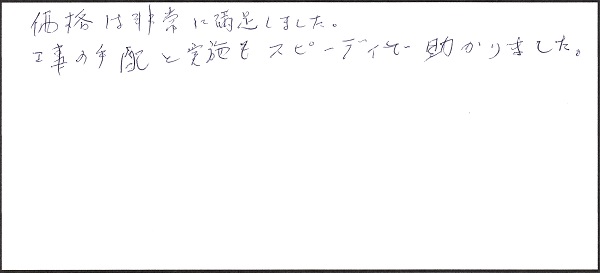 価格は非常に満足しました。
工事の手配と実施もスピーディで助かりました。